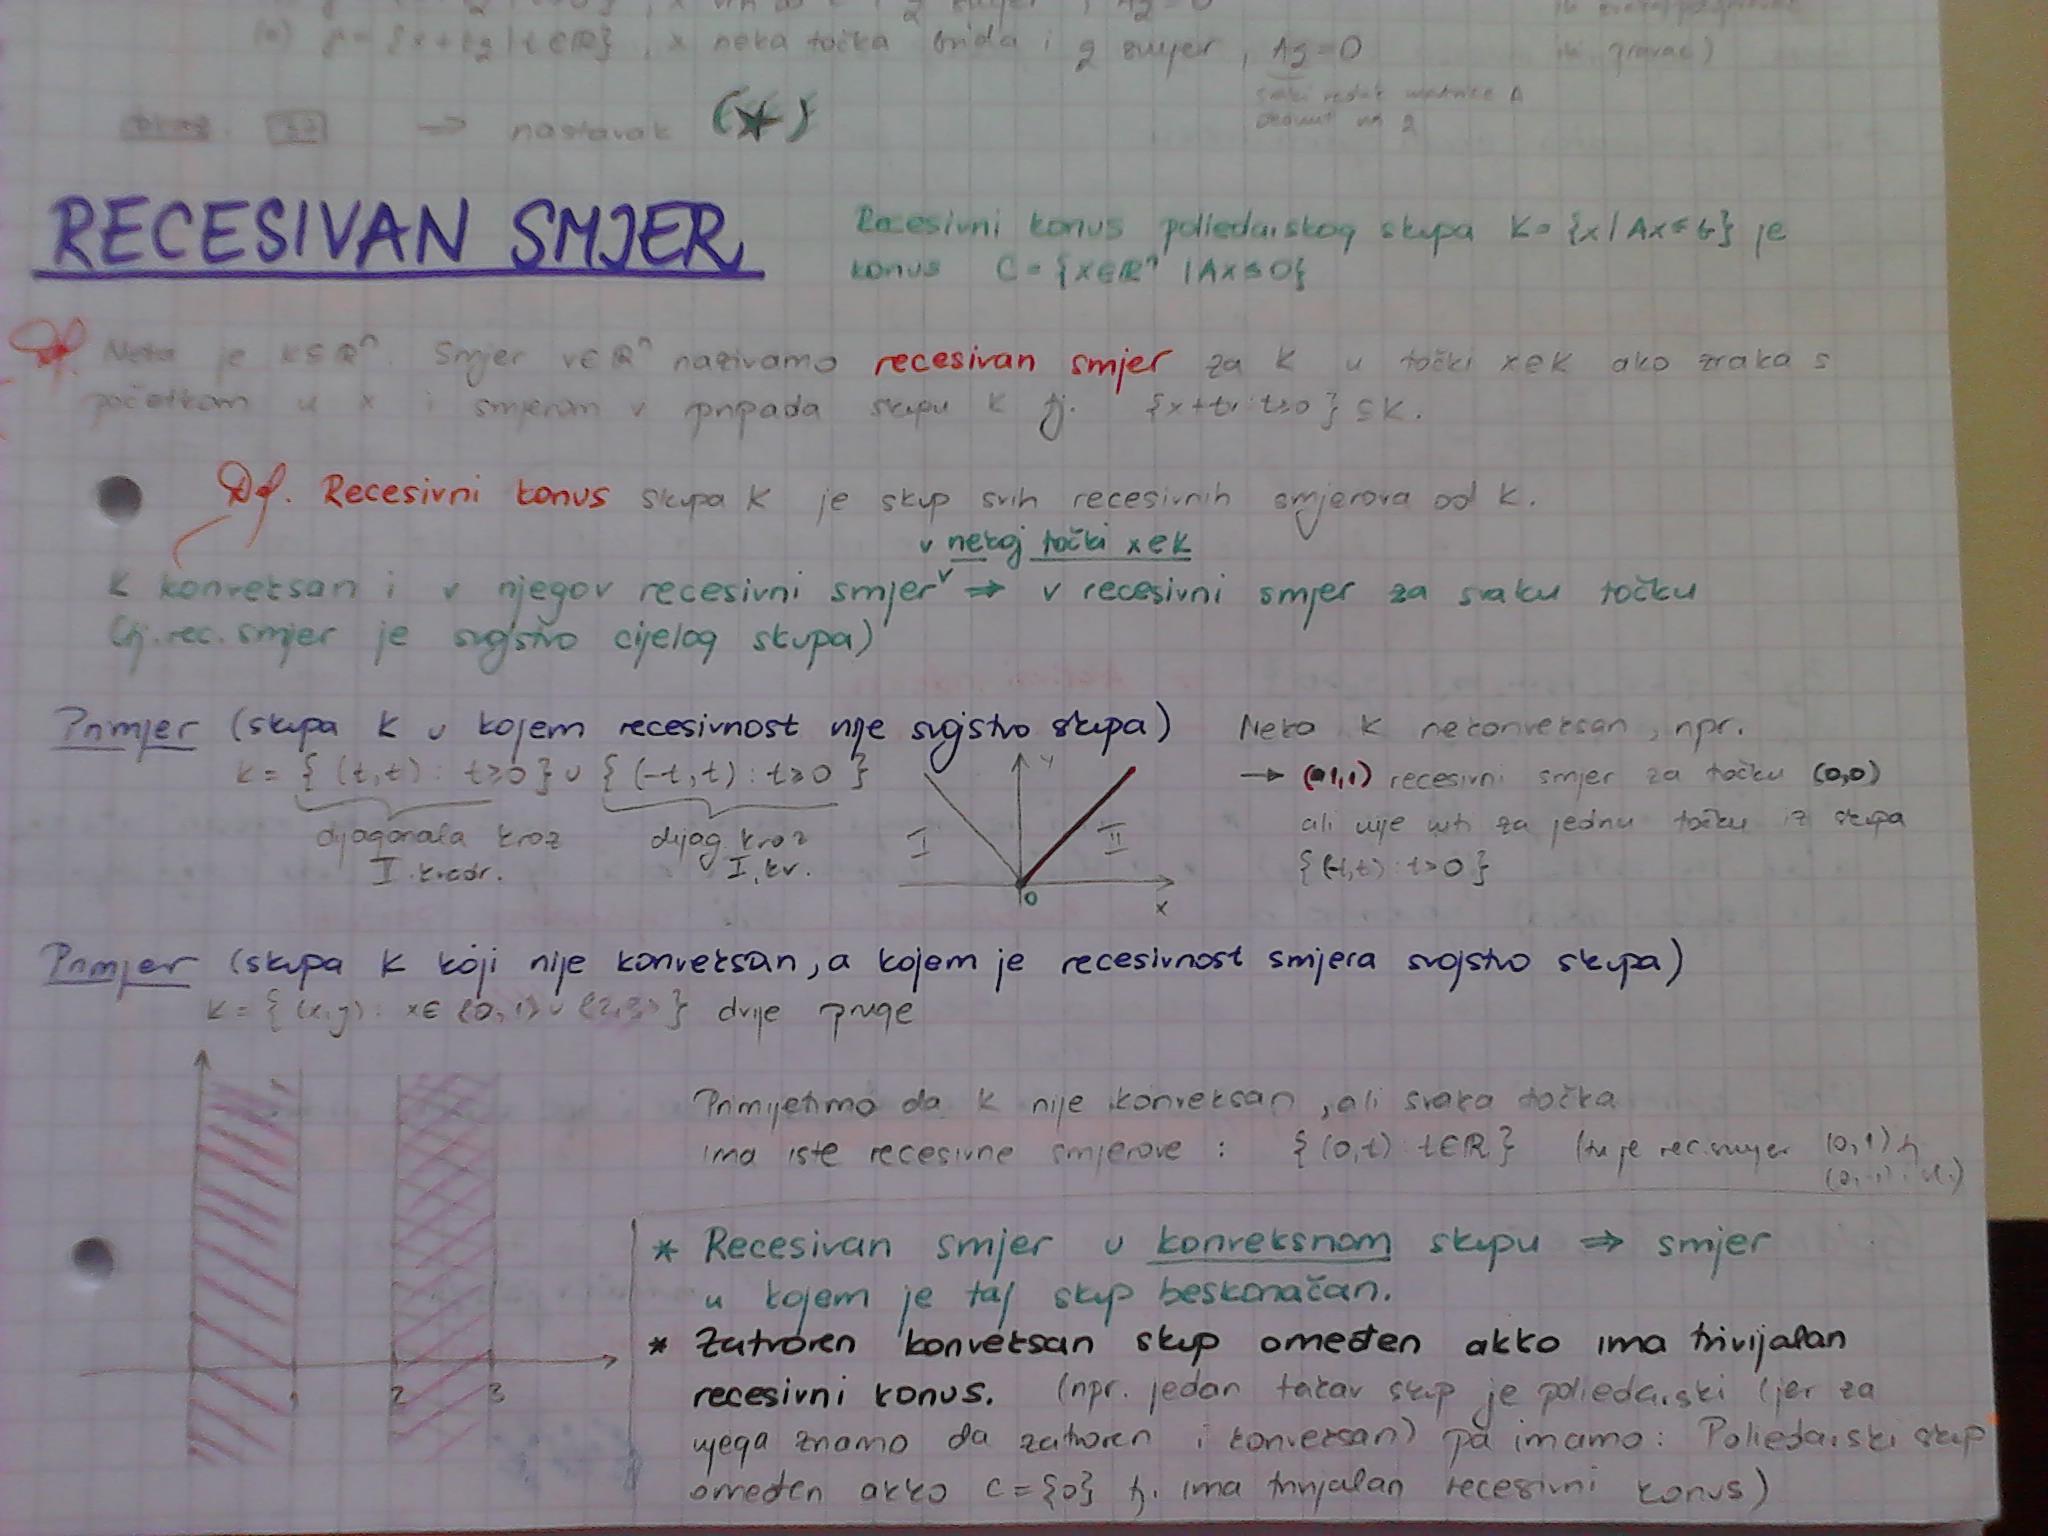 (*) p = {x+tg | t∈R}, x neka točka brida i g smjer, Ag=0
ili pravac)
svaki redak matrice A
⇒ nastavak (★)
RECESIVAN SMJER
Recesivni konus poliedarskog skupa K={x | Ax≤b} je
konus C = {x∈R^n | Ax≤0}
Df. Neka je K⊆R^n. Smjer v∈R^n nazivamo recesivan smjer za K u točki x∈K ako zraka s
početkom u x i smjerom v pripada skupu K tj. {x+tv : t≥0} ⊆ K.
Df. Recesivni konus skupa K je skup svih recesivnih smjerova od K.
v nekoj točki x∈K
K konveksan i v njegov recesivni smjer ⇒ v recesivni smjer za svaku točku
(tj. rec. smjer je svojstvo cijelog skupa)
Primjer (skupa K u kojem recesivnost nije svojstvo skupa)
Neka K nekonveksan, npr.
K = { (t,t) : t≥0 } ∪ { (-t,t) : t≥0 }
y
→ (1,1) recesivni smjer za točku (0,0)
dijagonala kroz
I. kvadr.
dijag. kroz
I. kv.
I
II
0
x
ali nije niti za jednu točku iz skupa
{(-t,t) : t>0}
Primjer (skupa K koji nije konveksan, a kojem je recesivnost smjera svojstvo skupa)
K = { (x,y) : x∈ ⟨0,1⟩ ∪ ⟨2,3⟩ } dvije pruge
Primijetimo da K nije konveksan, ali svaka točka
ima iste recesivne smjerove : { (0,t) : t∈R } (tu je rec. smjer (0,1) tj.
1 2 3
* Recesivan smjer u konveksnom skupu ⇒ smjer
u kojem je taj skup beskonačan.
* Zatvoren konveksan skup omeđen akko ima trivijalan
recesivni konus. (npr. jedan takav skup je poliedarski (jer za
njega znamo da zatvoren i konveksan) pa imamo: Poliedarski skup
omeđen akko C={0} tj. ima trivijalan recesivni konus)